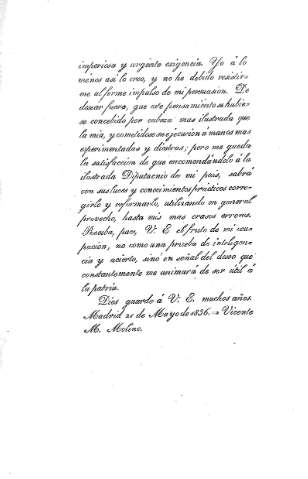 imperiosa y urgente exigencia. Yo á lo
ménos así lo creo, y no he debido resistir-
me al firme impulso de mi persuasion. De
desear fuera, que este pensamiento se hubiese
concebido por cabeza mas ilustrada que
la mia, y cometídose su ejecucion á manos mas
esperimentadas y diestras; pero me queda
la satisfaccion de que encomendándolo á la
ilustrada Diputacion de mi pais, sabrá
con sus luces y conocimientos prácticos corre-
girlo y reformarlo, utilizando en general
provecho, hasta mis mas crasos errores.
Reciba, pues, V. E. el fruto de mi ocu-
pacion, no como una prueba de inteligen-
cia y acierto, sino en señal del deseo que
constantemente me animará de ser útil á
la patria.
Dios guarde á V. E. muchos años.
Madrid 21 de Mayo de 1836. = Vicente
M. Moleno.